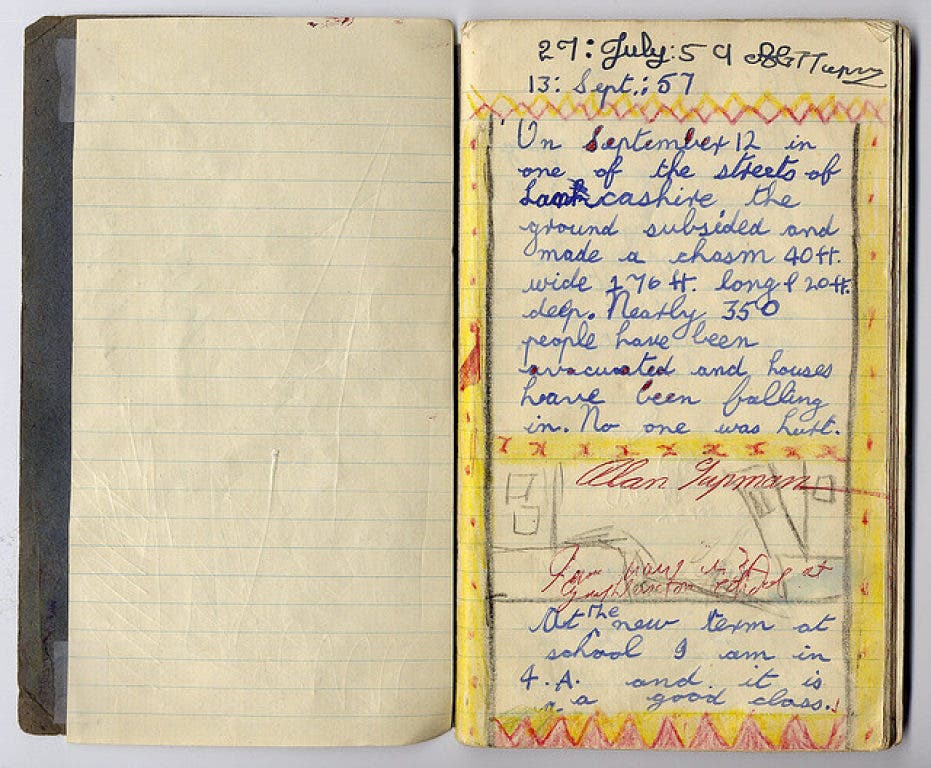 27: July: 59
13: Sept.; 57
On September 12 in
one of the streets of
Lancashire the
ground subsided and
made a chasm 40 ft.
wide 176 ft. long & 20 ft.
deep. Nearly 350
people have been
evacuated and houses
have been falling
in. No one was hurt.
Alan Tupman
at
At the new term at
school I am in
4.A. and it is
a good class.